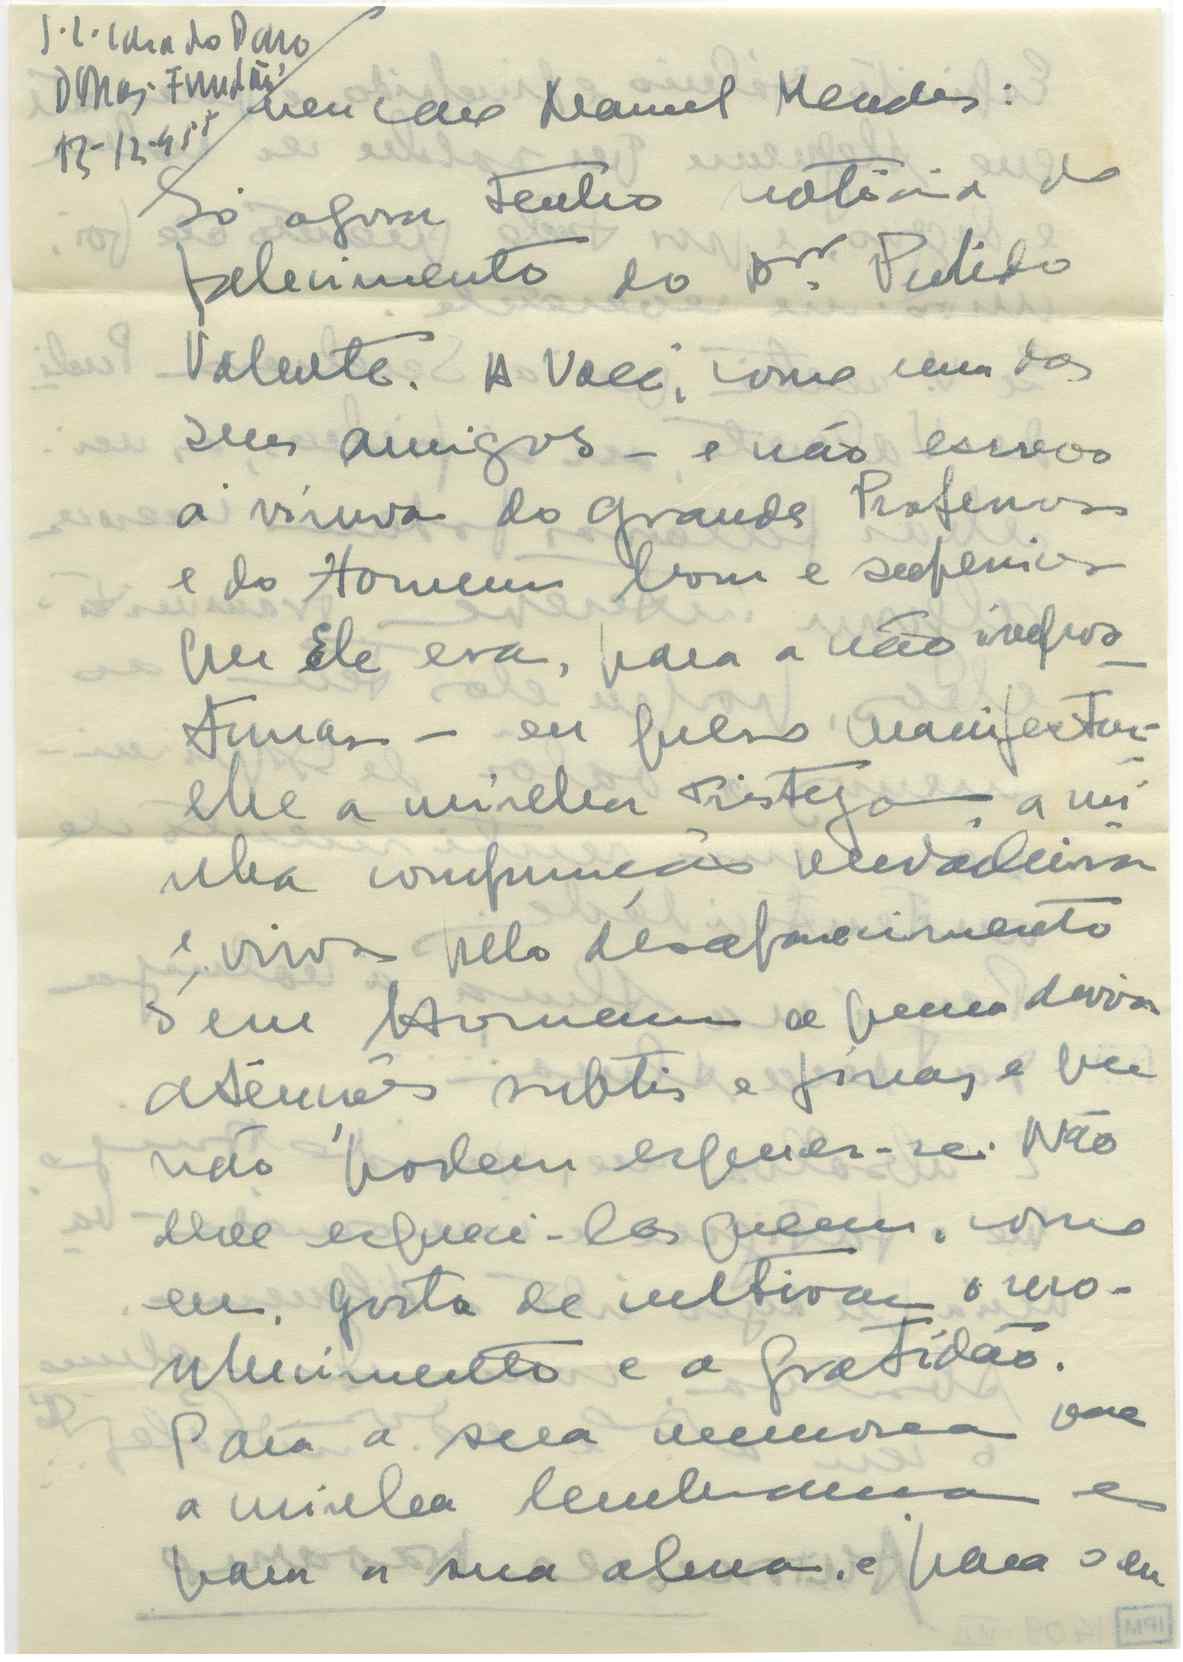 S. L. Casa do Douro
Donas - Fundão
13-12-955
Meu caro Manuel Mendes:
Só agora tenho notícia do
falecimento do Dr. Pulido
Valente. A Você, como um dos
seus amigos — e não escrevo
à viúva do grande Professor
e do Homem bom e superior
que Ele era, para a não impor-
tunar — eu quero manifestar-
lhe a minha tristeza, a mi
nha compunção verdadeira
e viva pelo desaparecimento
d'um Homem a quem devia
atenções subtis e finas e que
não podem esquecer-se. Não
deve esquecê-las quem, como
eu, gosta de cultivar o reco-
nhecimento e a gratidão.
Para a sua memória vae
a minha lembrança e
para a sua alma, e para o eu
IPM